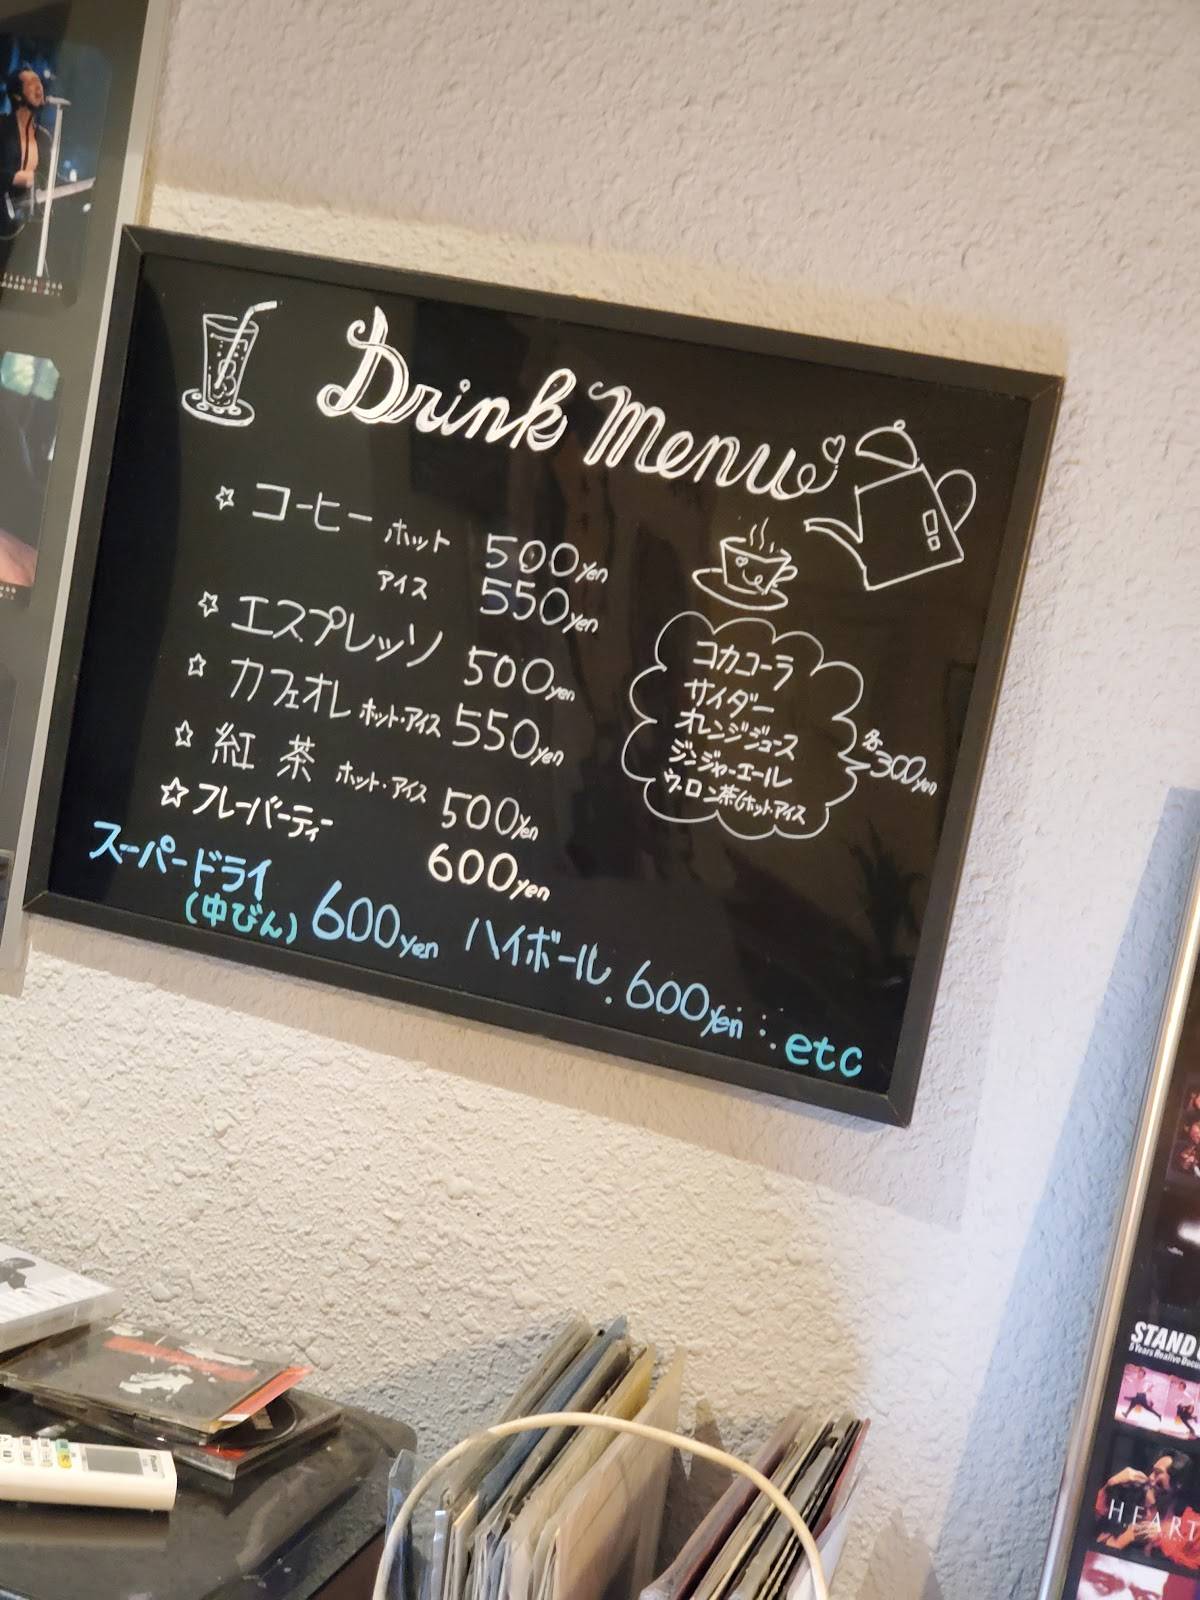 Drink Menu
☆ コーヒー ホット 500yen
アイス 550yen
☆ エスプレッソ 500yen
☆ カフェオレ ホット・アイス 550yen
☆ 紅茶 ホット・アイス 500yen
☆ フレーバーティー 600yen
コカコーラ
サイダー
オレンジジュース
ジンジャーエール
ウーロン茶(ホット・アイス
各300yen
スーパードライ
(中びん) 600yen ハイボール 600yen etc
STAND
5 Years Realive Docu
HEART